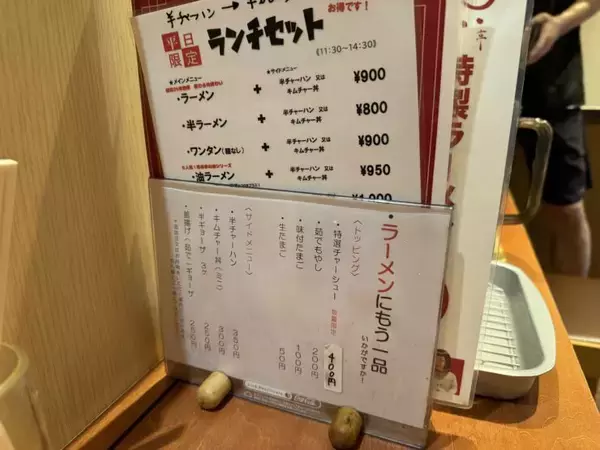 半チャーハン →
平日限定
ランチセット
お得です！
《11:30～14:30》
★メインメニュー
★サイドメニュー
・ラーメン
+
半チャーハン 又は キムチャー丼
¥900
・半ラーメン
+
半チャーハン 又は キムチャー丼
¥800
・ワンタン(麺なし)
+
半チャーハン 又は キムチャー丼
¥900
・油ラーメン
+
半チャーハン 又は キムチャー丼
¥950
・ラーメンにもう一品
いかがですか！
〈トッピング〉
・特選チャーシュー 数量限定 400円
・茹でもやし 200円
・味付たまご 100円
・生たまご 50円
〈サイドメニュー〉
・半チャーハン 350円
・キムチャー丼(ミニ) 300円
・半ギョーザ 3ケ 250円
特製ラーメン